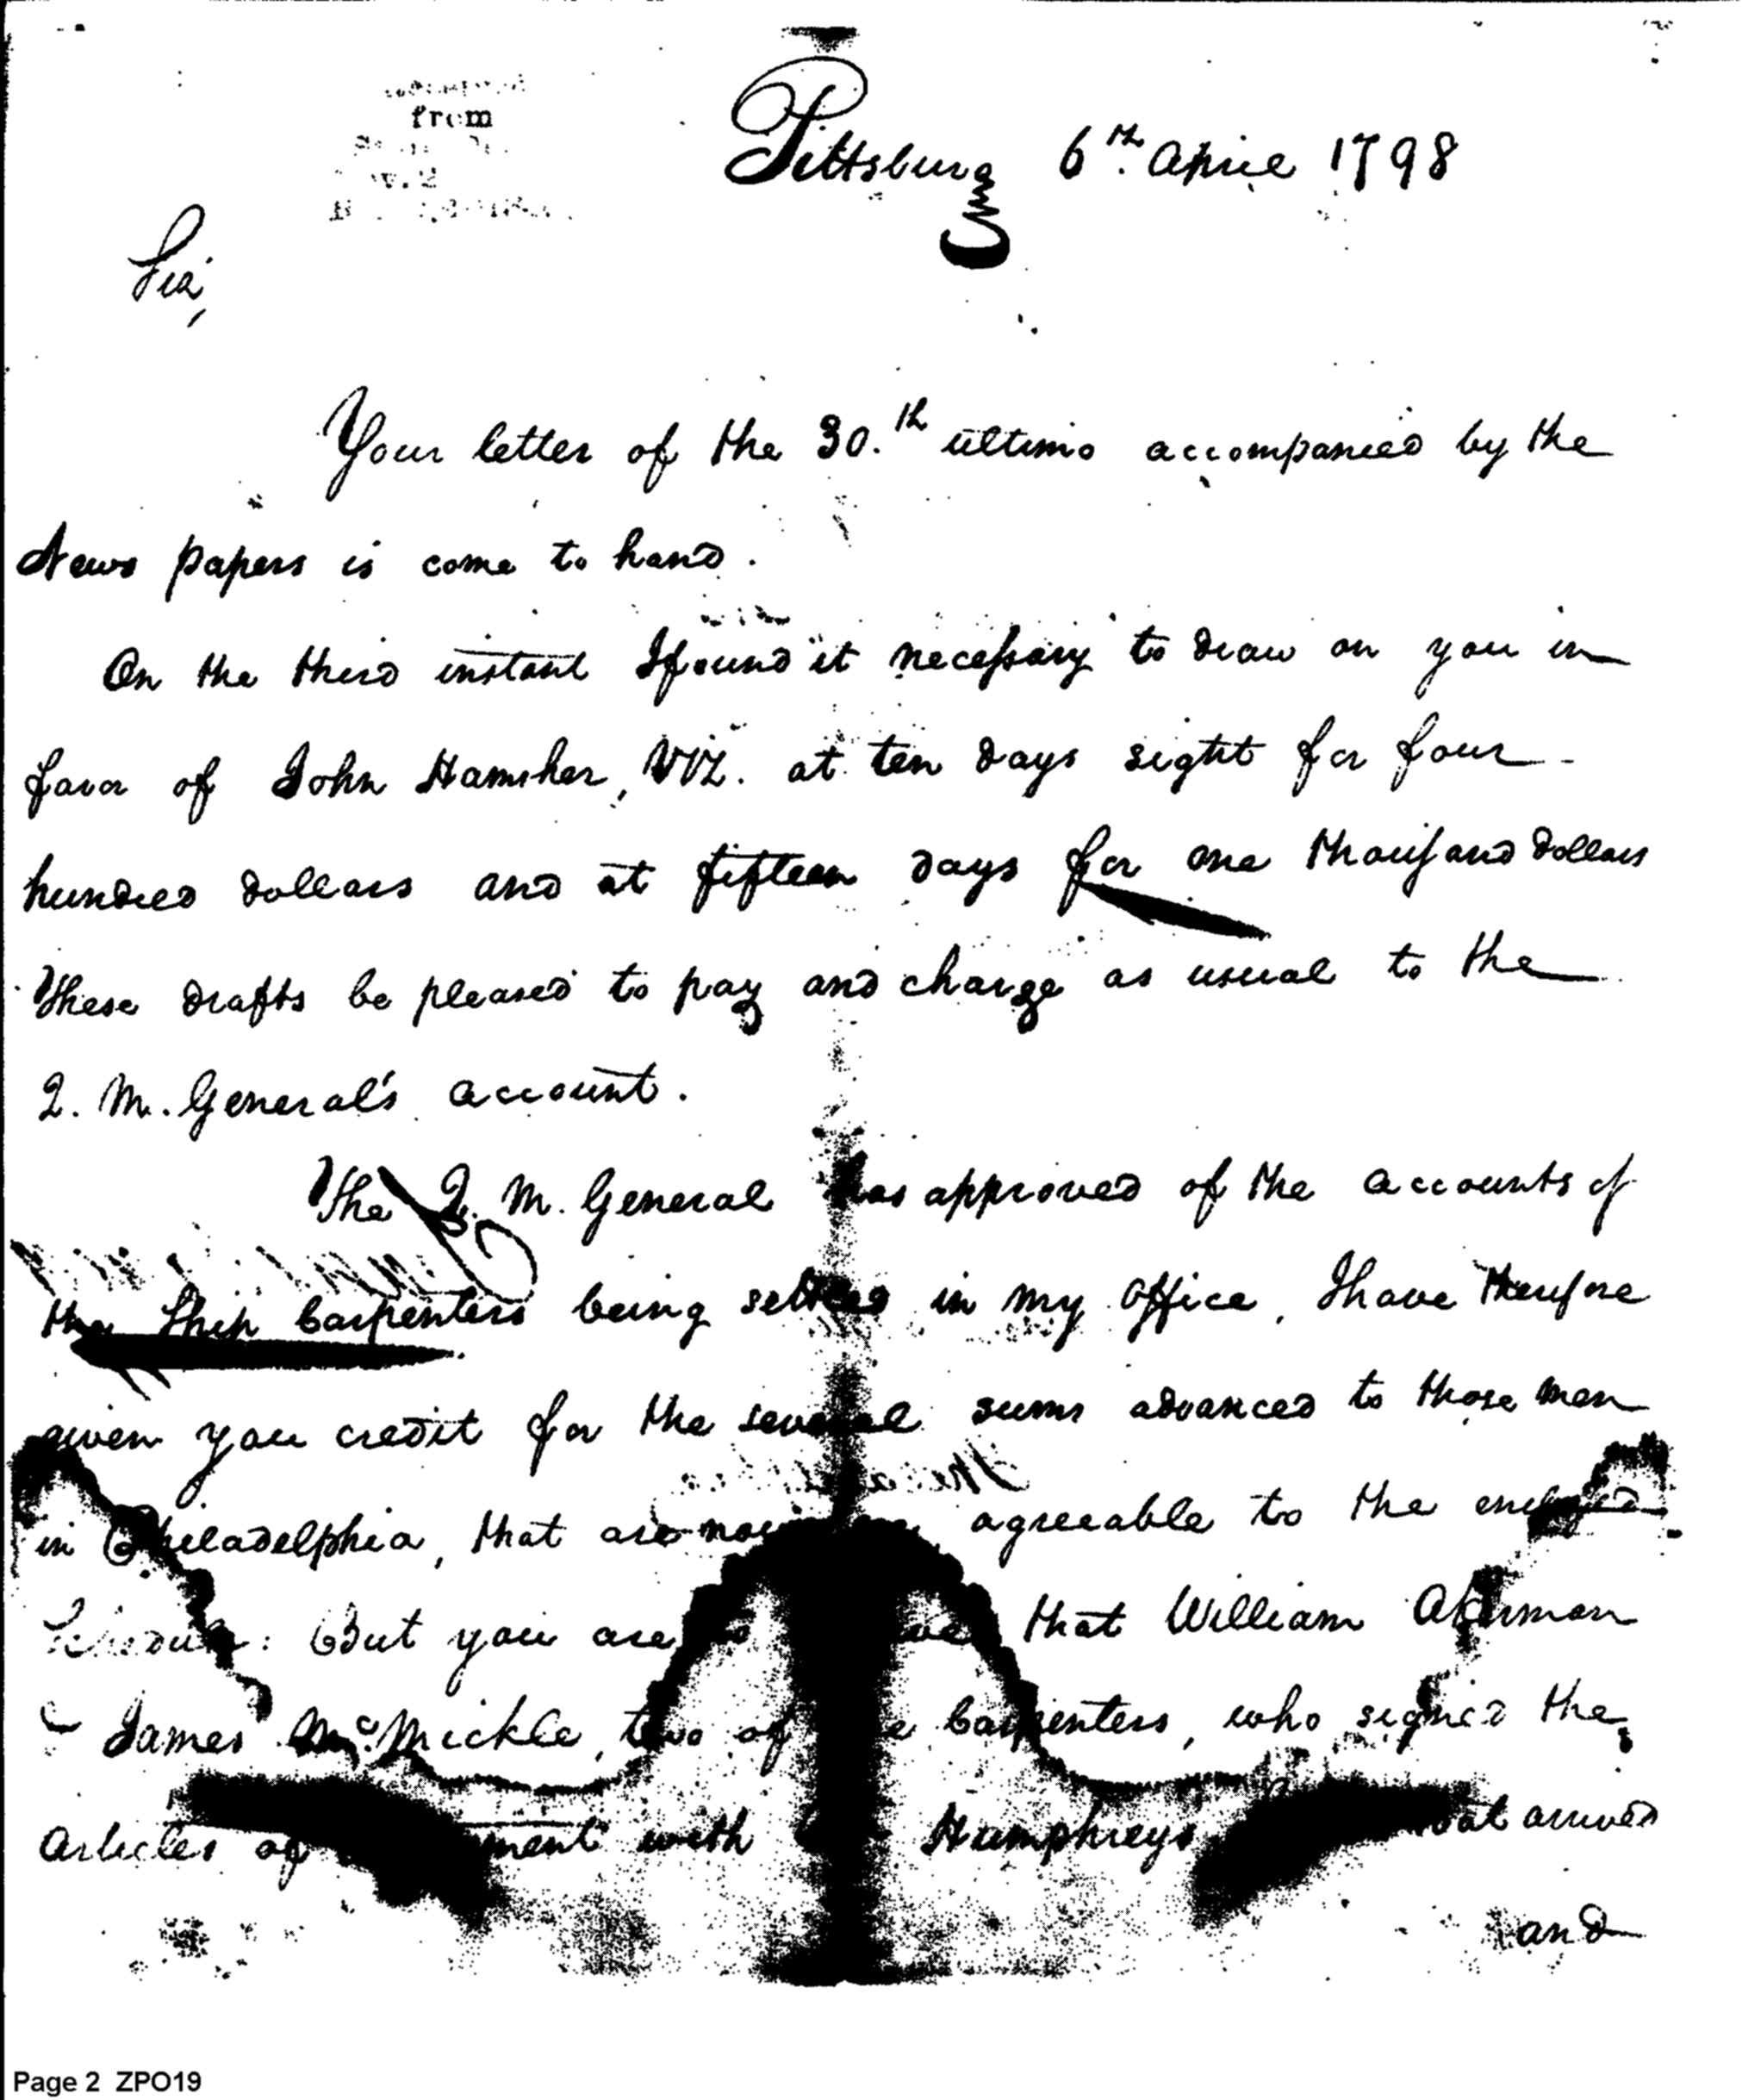 from
Pittsburg 6th. April 1798
Sir,
Your letter of the 30.th ultimo accompanied by the
News papers is come to hand.
On the third instant I found it necessary to draw on you in
favor of John Hamsher, viz. at ten days sight for four
hundred dollars and at fifteen days for one thousand dollars
These drafts be pleased to pay and charge as usual to the
Q. M. General's account.
The Q. M. General has approved of the accounts of
the Ship Carpenters being settled in my office, I have therefore
given you credit for the several sums advanced to those men
in Philadelphia, that are now agreeable to the enclosed
Schedule: But you are that William Akerman
James McMickle, two of the Carpenters, who signed the
Articles of with Humphreys arrived
and
Page 2 ZPO19